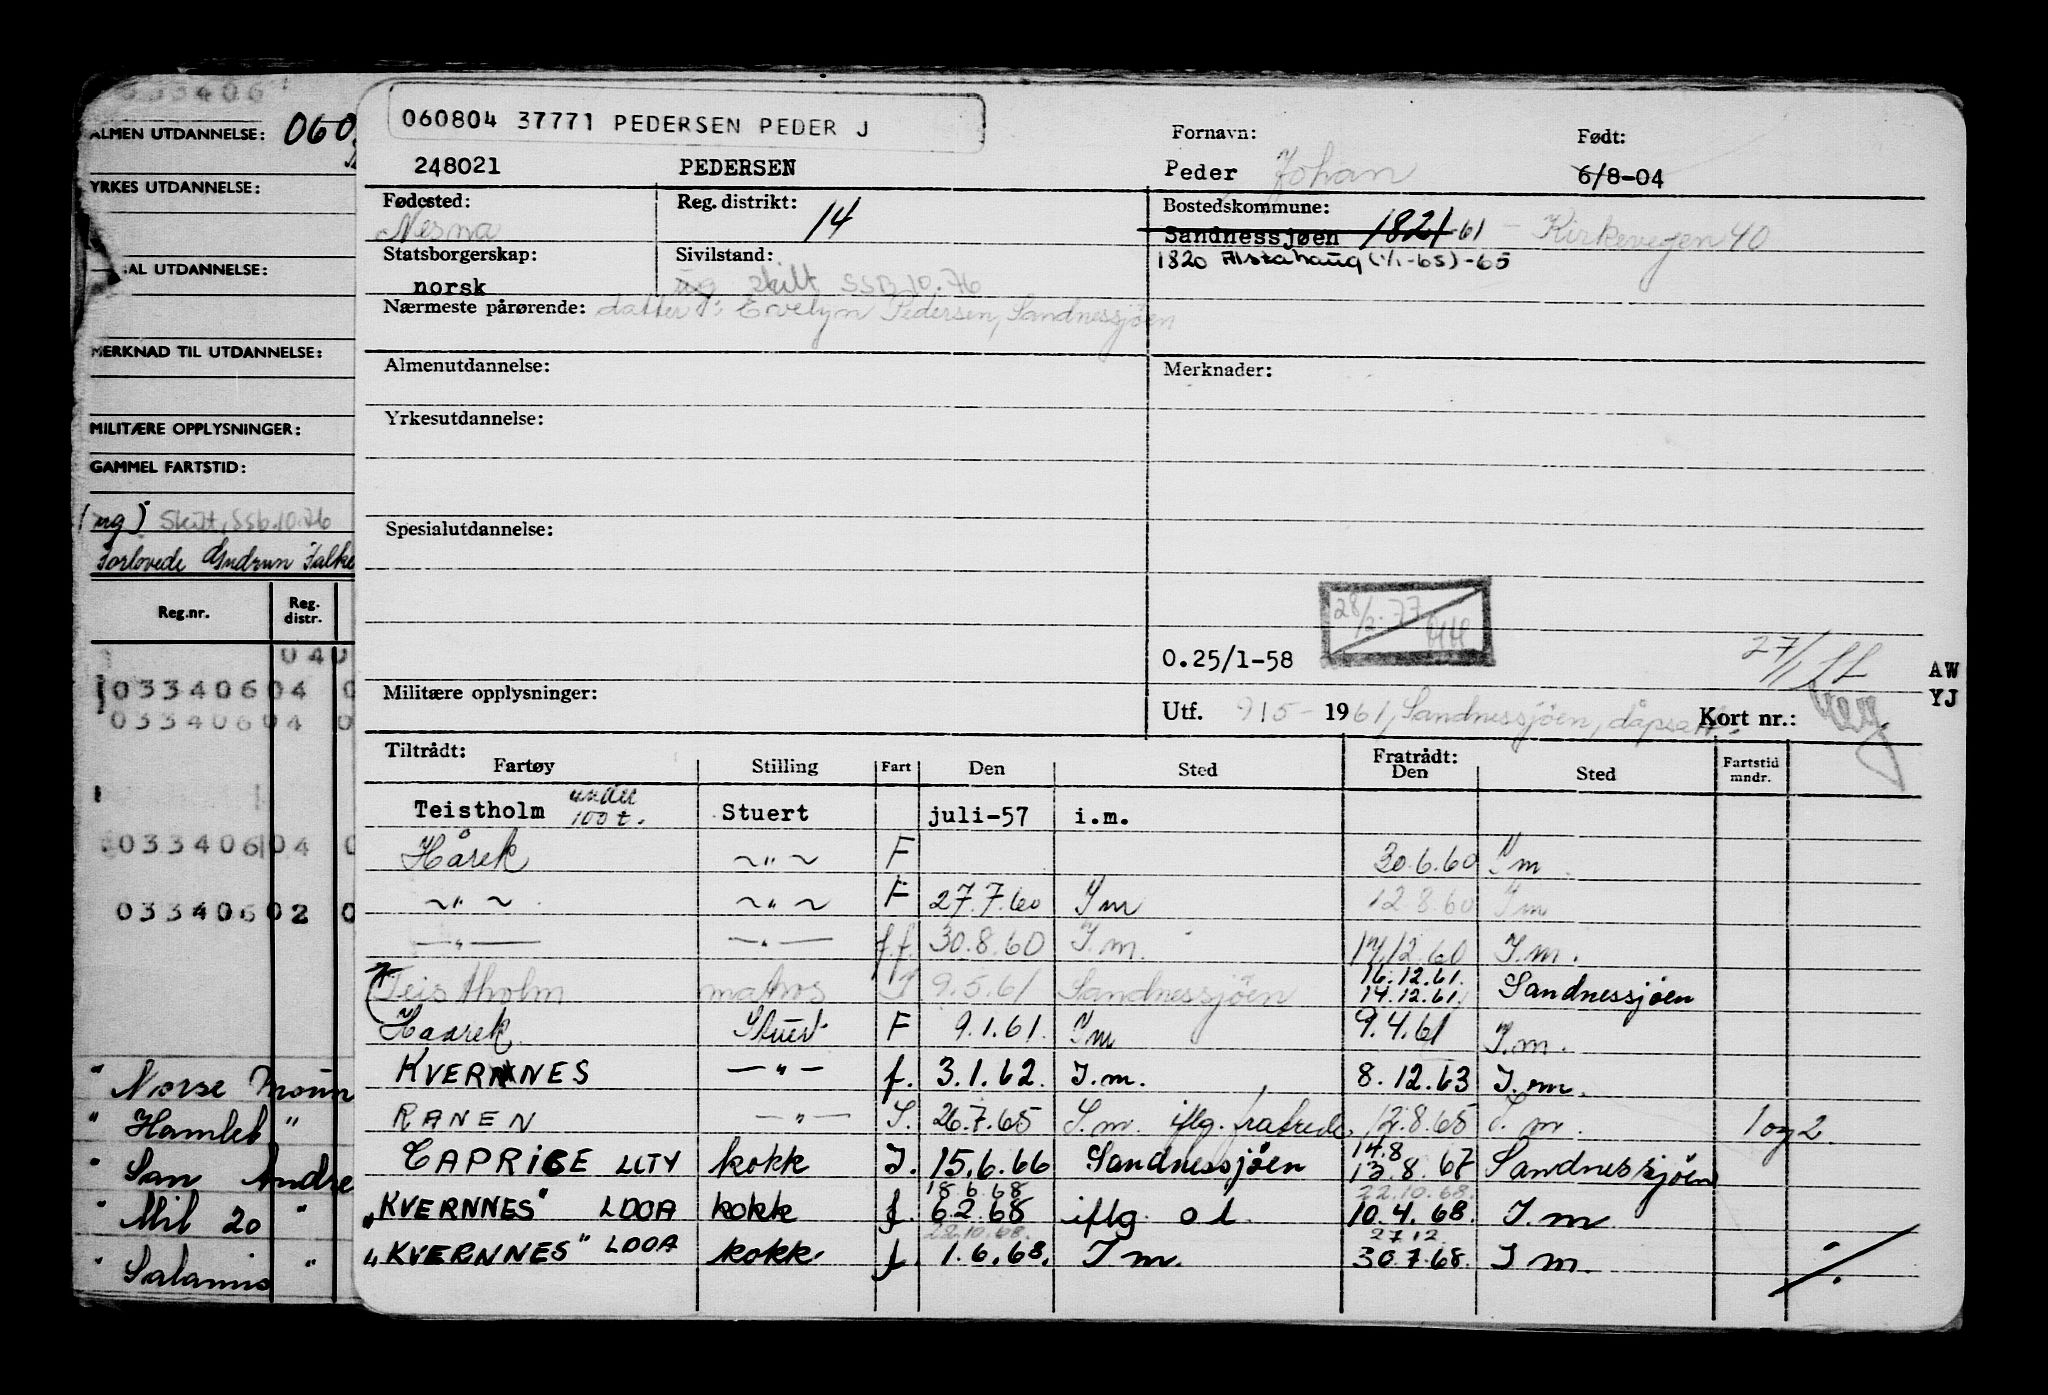 033406
ALMEN UTDANNELSE: 060
YRKES UTDANNELSE:
AL UTDANNELSE:
MERKNAD TIL UTDANNELSE:
MILITÆRE OPPLYSNINGER:
GAMMEL FARTSTID:
(ug) Skilt, SSb.10.76
Forlovede Gudrun Falke
Reg.nr. Reg. distr.
040
03340604 0
03340604 0
03340604 0
03340602 0
" Norse Moun
" Hamlet "
" San Andre
" Mil 20 "
" Salamis "
060804 37771 PEDERSEN PEDER J
Fornavn: Født:
248021 PEDERSEN Peder Johan 6/8-04
Fødested: Reg. distrikt: 14 Bostedskommune:
Nesna Sandnessjøen 1821-61 - Kirkevegen 40
Statsborgerskap: Sivilstand: 1820 Alstahaug (1/1-65)-65
norsk ug skilt SSB 10.76
Nærmeste pårørende: datter: Evelyn Pedersen, Sandnessjøen
Almenutdannelse: Merknader:
Yrkesutdannelse:
Spesialutdannelse:
28/2.77
O.25/1-58 27/1
AW
YJ
Militære opplysninger:
Utf. 915- 1961, Sandnessjøen, dåpsatt. Kort nr.:
Tiltrådt: Fratrådt:
Fartøy Stilling Fart Den Sted Den Sted Fartstid mndr.
Teistholm under 100 t. Stuert juli-57 i.m.
Hårek ~"~ F 30.6.60 I m
~"~ ~"~ F 27.7.60 I m 12.8.60 I m
—"— —"— f.f. 30.8.60 I.m. 17.12.60 I.m.
Teistholm matros 9.5.61 Sandnessjöen 16.12.61. 14.12.61. Sandnessjöen
Haarek Stuert F 9.1.61. I m 9.4.61 I.m.
KVERNNES —"— f. 3.1.62. I.m. 8.12.63 I.m.
RANEN —"— I. 26.7.65 I.m. iflg. fratrede. 12.8.65 I.m. 1 og 2.
CAPRICE LLTY kokk I. 15.6.66 Sandnessjöen 14.8 13.8.67 Sandnessjöen
18.6.68 22.10.68.
"KVERNNES" LDOA kokk f. 6.2.68 iflg. o l. 10.4.68. I.m
22.10.68. 27.12
"KVERNNES" LDOA kokk. f. 1.6.68. I m. 30.7.68. I m.